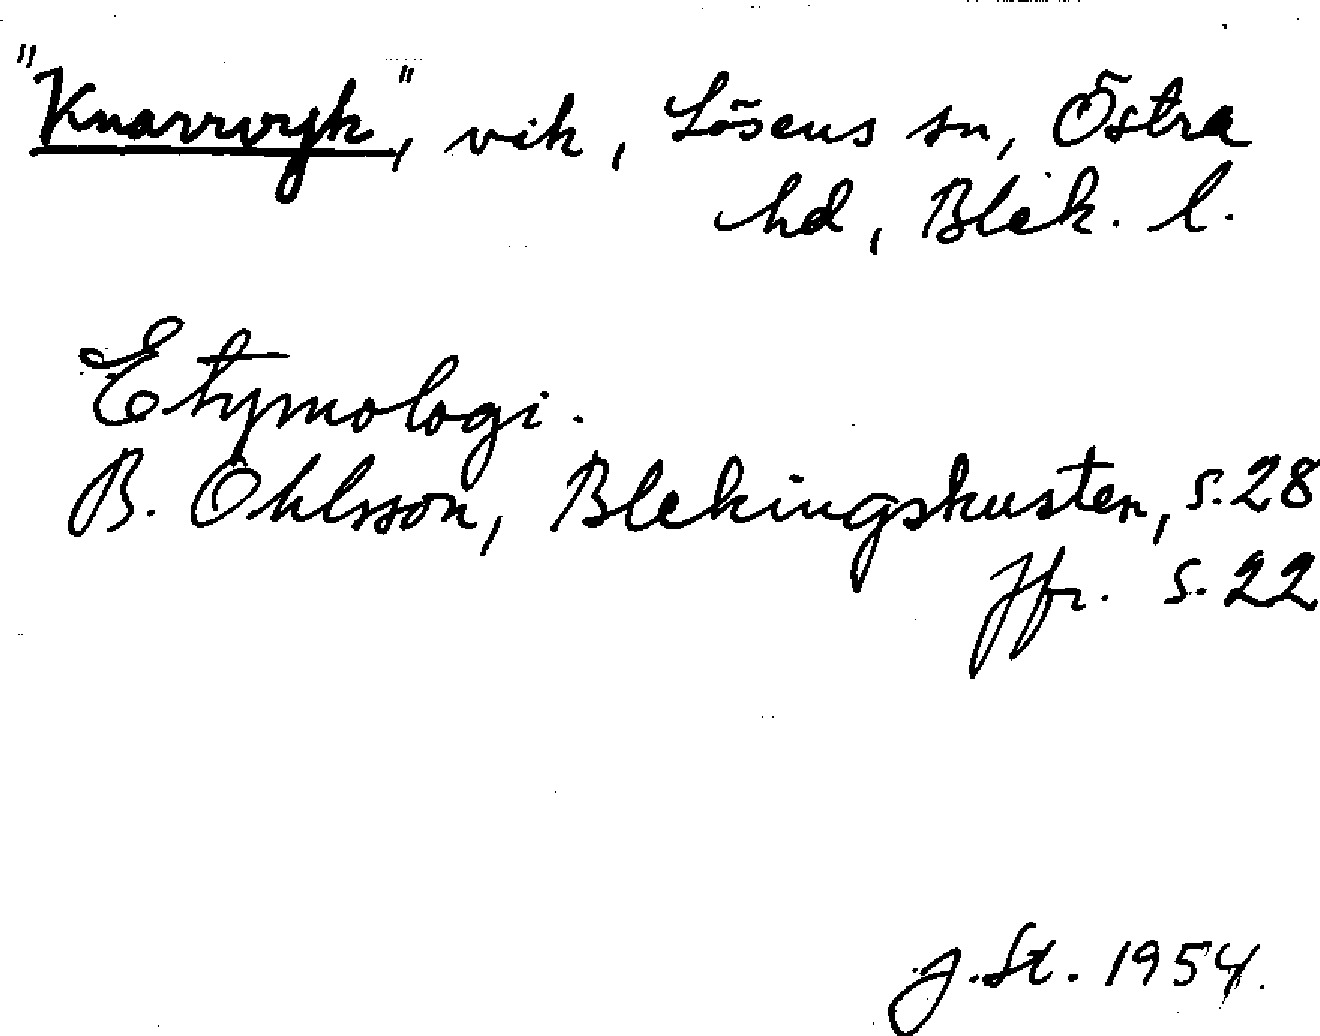 "Knarrvyk", vik, Lösens sn, Östra
hd, Blek. l.
Etymologi.
B. Ohlsson, Blekingskusten, s. 28
Jfr. s. 22
J. St. 1954.